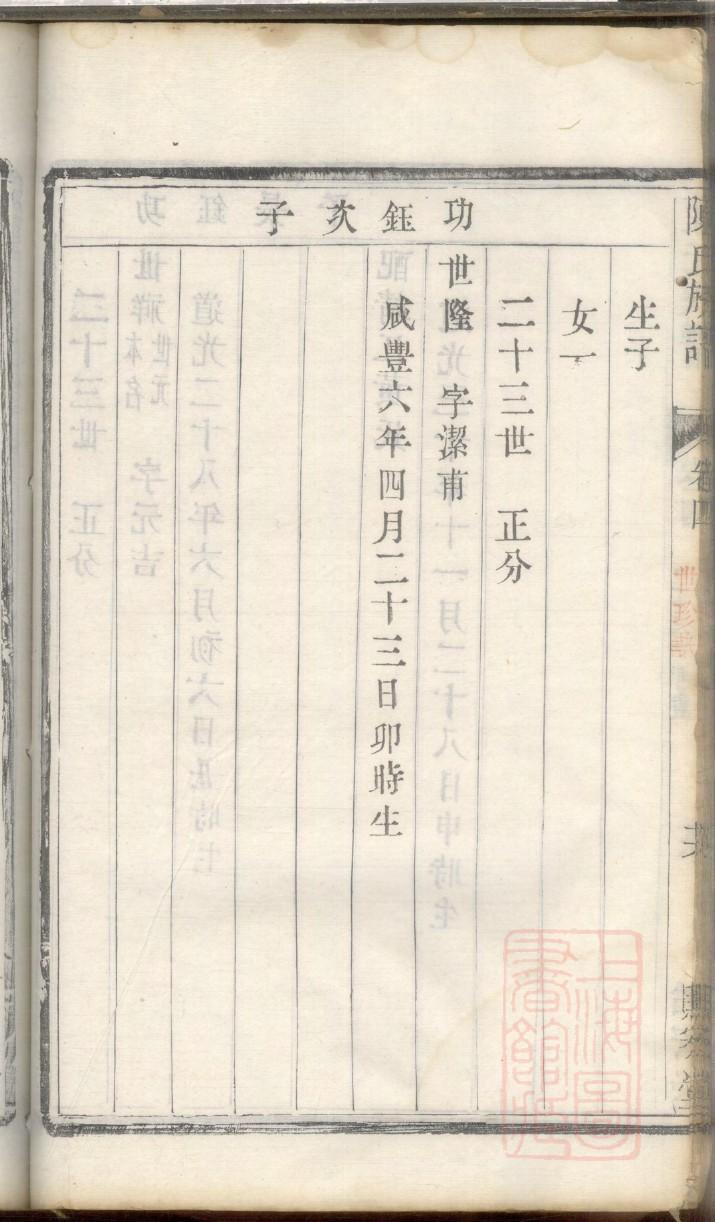 陳氏族譜 卷四
世珍
生子
女一
二十三世 正分
功鈺次子
世隆 字潔甫
咸豐六年四月二十三日卯時生
上海圖書館藏